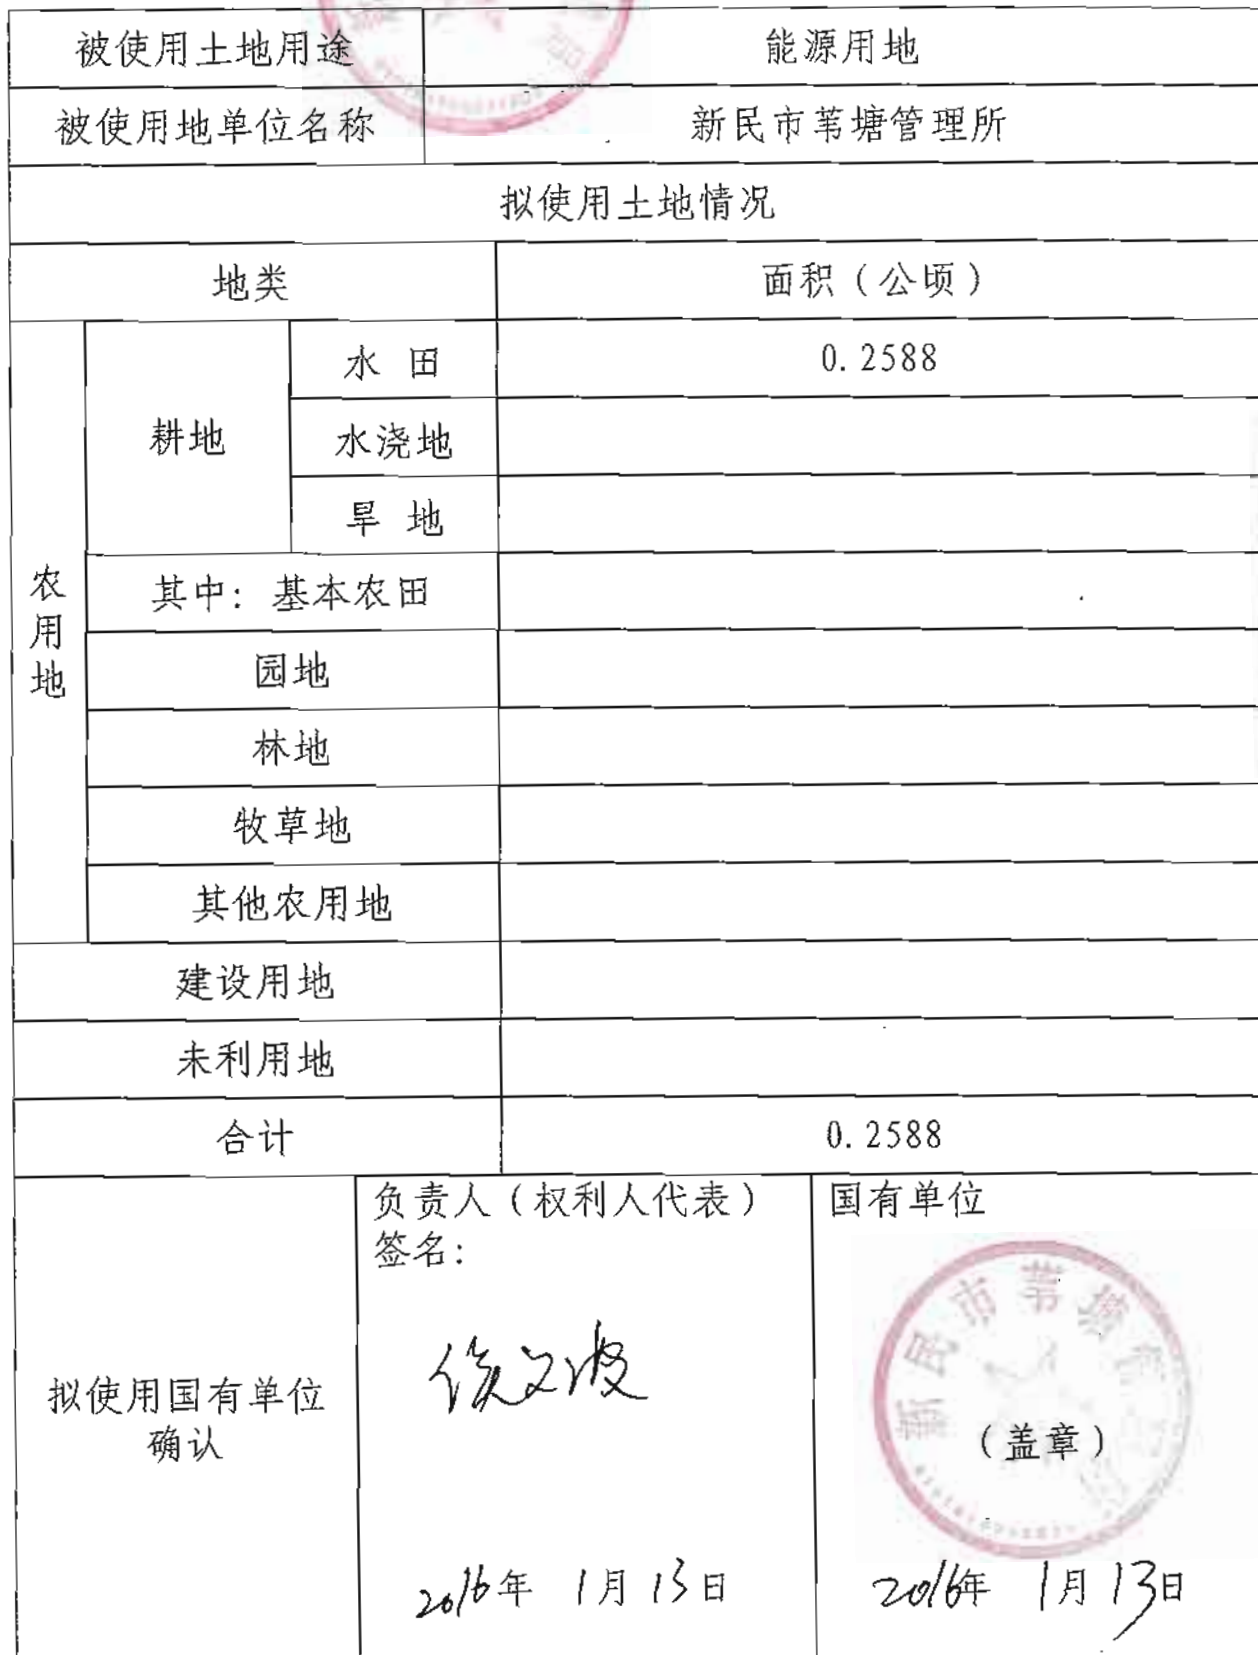 被使用土地用途 能源用地
被使用地单位名称 新民市苇塘管理所
拟使用土地情况
地类 面积（公顷）
农用地 耕地 水田 0.2588
水浇地
旱地
其中：基本农田
园地
林地
牧草地
其他农用地
建设用地
未利用地
合计 0.2588
拟使用国有单位
确认
负责人（权利人代表）
签名：
2016年 1月 13日
国有单位
新民市苇塘管
（盖章）
2016年 1月 13日